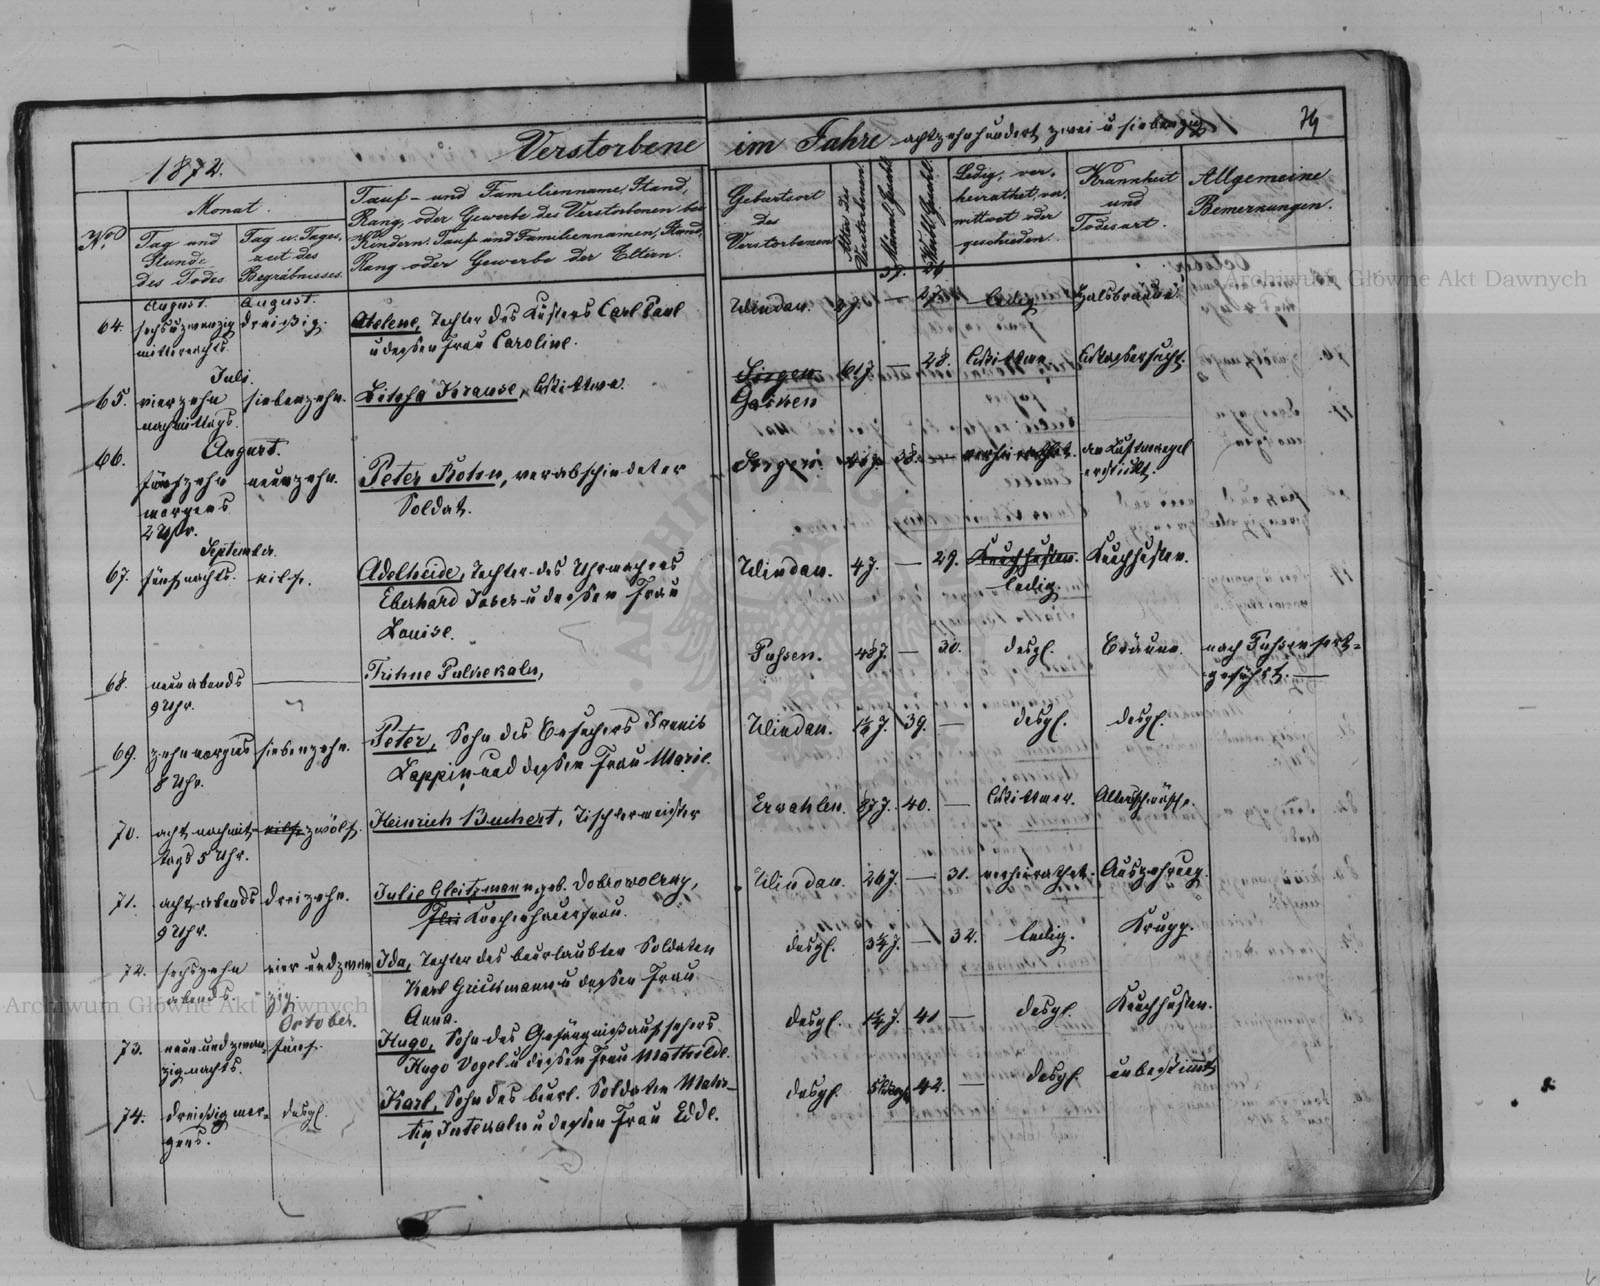 Verstorbene im Jahre achtzehnhundert zwei u siebenzig
1872.
No
Monat.
Tag und Stunde des Todes
Tag u. Tages-zeit des Begräbnisses.
Tauf- und Familienname, Stand,
Rang, oder Gewerbe des Verstorbenen bei
Kindern: Tauf- und Familiennamen, Stand,
Rang oder Gewerbe der Eltern.
Geburtsort des Verstorbenen
Alter des Verstorbenen.
Männl. Geschl.
Weibl. Geschl.
Ledig, ver-
heirathet, ver-
wittwet oder
geschieden.
Krankheit und Todesart.
Allgemeine Bemerkungen.
37. 26.
August. August.
64. sechsuzwanzig dreißig.
mitternachts.
Helene, Tochter des Küsters Carl Paul
u dessen Frau Caroline.
Windau. — 27. ledig Halsbräune.
Juli.
65. vierzehn siebenzehn.
nachmittags.
Krause, Wittwe
Sirgen 61 J. — 28. Wittwe. Wassersucht.
Gasken
August.
66. fünfzehn neunzehn.
morgens
2 Uhr.
Peter Kohn, verabschiedeter
Soldat.
Sirgen. 38. — verheirathet. an Luftmangel
erstickt.
September.
67. fünf nachts. eilf.
Adelheide, Tochter des Uhrmachers
Eberhard u dessen Frau
Louise.
Windau. 4 J. — 29. Keuchhusten. Keuchhusten.
ledig
68. neun abends —
9 Uhr.
Trihne Pulnekaln,
Pussen. 48 J. — 30. desgl. Bräune. nach Pussen fort-
geführt. —
69. zehn morgens siebenzehn.
8 Uhr.
Peter, Sohn des Besuchers Jannis
Lappin und dessen Frau Marie.
Windau. 39. — desgl. desgl.
70. acht nachmit- eilf zwölf.
tags 5 Uhr.
Heinrich Buchert, Tischlermeister
Erwahlen. 87 J. 40. — Wittwer. Altersschwäche.
71. acht abends dreizehn.
9 Uhr.
Julie Gleitzmann geb. Dobrowolsky,
Knochenhauerfrau.
Windau. 26 J. — 31. verheirathet. Auszehrung.
72. sechszehn vier undzwan-
abends. zig.
Ida, Tochter des beurlaubten Soldaten
Karl Grickmann u dessen Frau
Anna.
desgl. — 32. ledig. Krupp.
October.
73. neun undzwan- fünf.
zig nachts.
Hugo, Sohn des Gefängnißaufsehers
Hugo Vogel u dessen Frau Mathilde.
desgl. 41 — desgl. Keuchhusten.
74. dreißig mor- desgl.
gens.
Karl, Sohn des beurl. Soldaten Mahr-
tin Intekaln u dessen Frau Edde.
desgl. 42. — desgl. unbestimmt
Archiwum Główne Akt Dawnych
Archiwum Główne Akt Dawnych